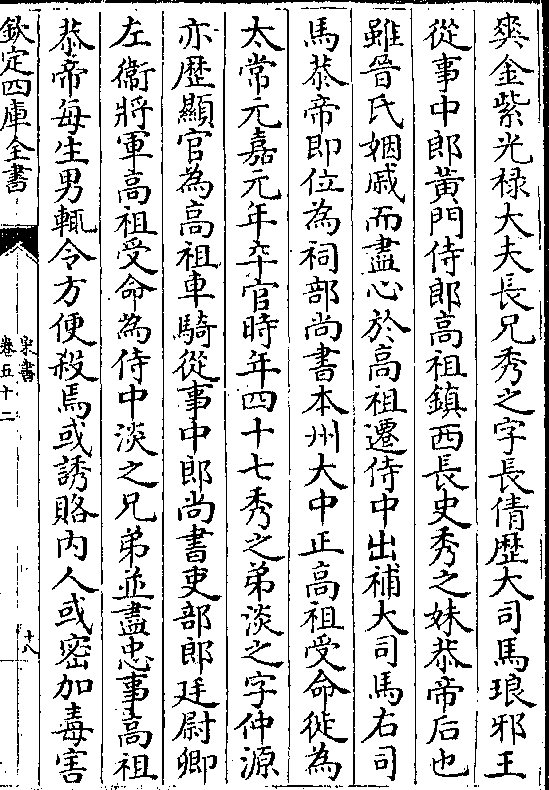 爽金紫光祿大夫長兄秀之字長倩歴大司馬琅邪王
從事中郎黄門侍郎高祖鎮西長史秀之妹恭帝后也
雖晉氏姻戚而盡心於高祖遷侍中出補大司馬右司
馬恭帝即位為祠部尚書本州大中正高祖受命徙為
太常元嘉元年卒官時年四十七秀之弟淡之字仲源
亦歴顯官為高祖車騎從事中郎尚書吏部郎廷尉卿
左衛將軍高祖受命為侍中淡之兄弟並盡忠事高祖
恭帝每生男輒令方便殺焉或誘賂内人或密加毒害
欽定四庫全書
宋書
卷五十二
十八